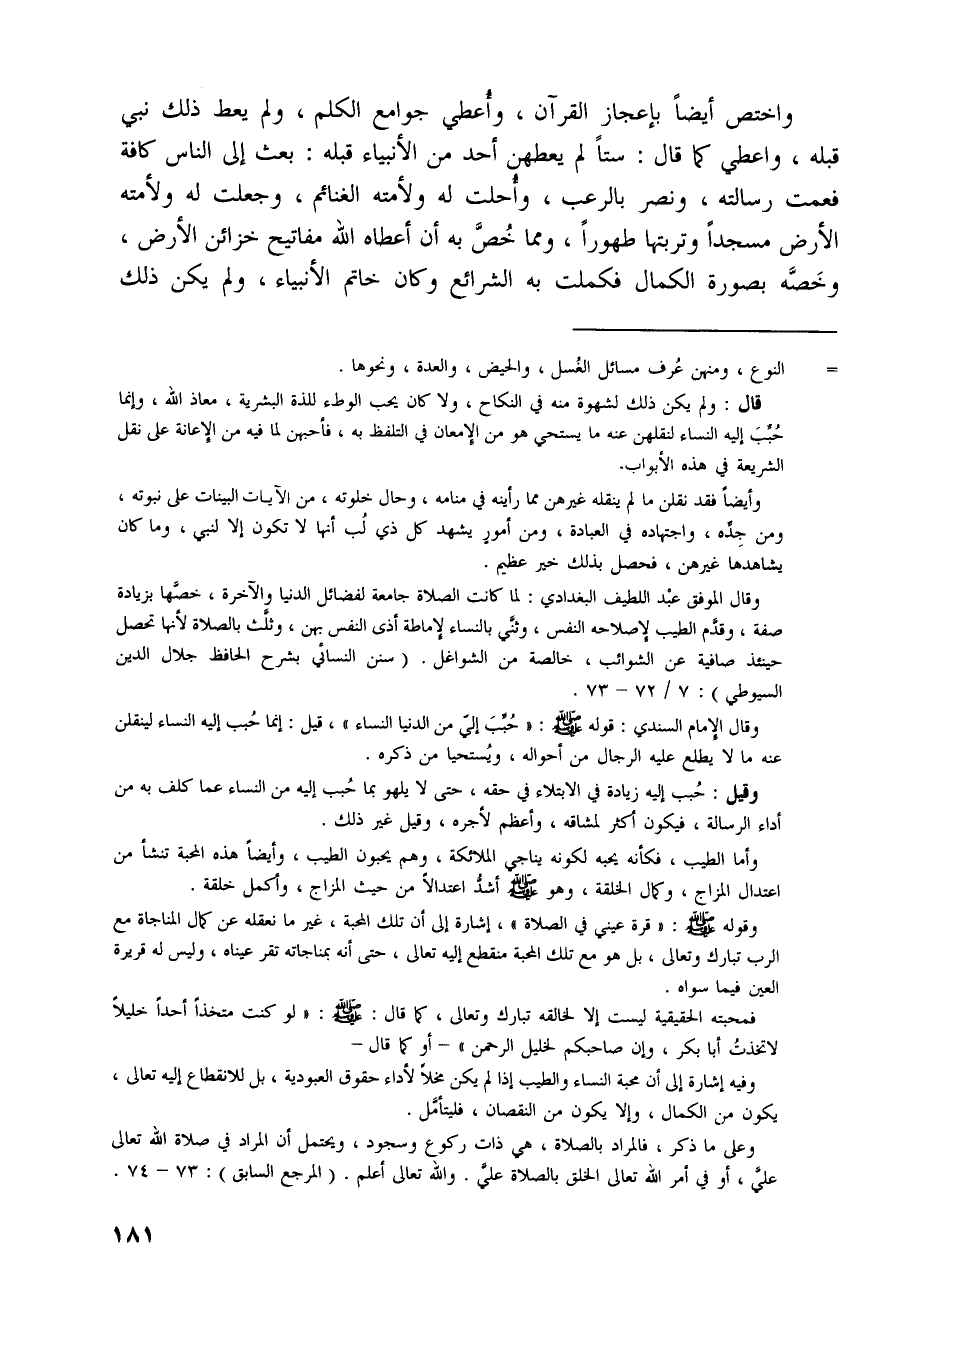 واختص أيضاً بإعجاز القرآن ، وأُعطي جوامع الكلم ، ولم يعط ذلك نبي
قبله ، واعطي كما قال : ستاً لم يعطهن أحد من الأنبياء قبله : بعث إلى الناس كافة
فعمت رسالته ، ونصر بالرعب ، وأُحلت له ولأمته الغنائم ، وجعلت له ولأمته
الأرض مسجداً وتربتها طهوراً ، ومما خُصَّ به أن أعطاه الله مفاتيح خزائن الأرض ،
وخَصَّه بصورة الكمال فكملت به الشرائع وكان خاتم الأنبياء ، ولم يكن ذلك
= النوع ، ومنهن عُرف مسائل الغُسل ، والحيض ، والعدة ، ونحوها .
قال : ولم يكن ذلك لشهوة منه في النكاح ، ولا كان يحب الوطء للذة البشرية ، معاذ الله ، وإنما
حُبِّبَ إليه النساء لنقلهن عنه ما يستحي هو من الإمعان في التلفظ به ، فأحبهن لما فيه من الإعانة على نقل
الشريعة في هذه الأبواب.
وأيضاً فقد نقلن ما لم ينقله غيرهن مما رأينه في منامه ، وحال خلوته ، من الآيات البينات على نبوته ،
ومن جِدِّه ، واجتهاده في العبادة ، ومن أمورٍ يشهد كل ذي لُب أنها لا تكون إلا لنبي ، وما كان
يشاهدها غيرهن ، فحصل بذلك خير عظيم .
وقال الموفق عبْد اللطيف البغدادي : لما كانت الصلاة جامعة لفضائل الدنيا والآخرة ، خصَّها بزيادة
صفة ، وقدَّم الطيب لإصلاحه النفس ، وثنَّي بالنساء لإماطة أذى النفس بهن ، وثلَّث بالصلاة لأنها تحصل
حينئذ صافية عن الشوائب ، خالصة من الشواغل . ( سنن النسائي بشرح الحافظ جلال الدين
السيوطي ) : ٧ / ٧٢ – ٧٣ .
وقال الإمام السندي : قوله ﷺ : « حُبِّبَ إليّ من الدنيا النساء » ، قيل : إنما حُبب إليه النساء لينقلن
عنه ما لا يطلع عليه الرجال من أحواله ، ويُستحيا من ذكره .
وقيل : حُبب إليه زيادة في الابتلاء في حقه ، حتى لا يلهو بما حُبب إليه من النساء عما كلف به من
أداء الرسالة ، فيكون أكثر لمشاقه ، وأعظم لأجره ، وقيل غير ذلك .
وأما الطيب ، فكأنه يحبه لكونه يناجي الملائكة ، وهم يحبون الطيب ، وأيضاً هذه المحبة تنشأ من
اعتدال المزاج ، وكمال الخلقة ، وهو ﷺ أشدُّ اعتدالاً من حيث المزاج ، وأكمل خلقة .
وقوله ﷺ : « قرة عيني في الصلاة » ، إشارة إلى أن تلك المحبة ، غير ما نعقله عن كمال المناجاة مع
الرب تبارك وتعالى ، بل هو مع تلك المحبة منقطع إليه تعالى ، حتى أنه بمناجاته تقر عيناه ، وليس له قريرة
العين فيما سواه .
فمحبته الحقيقية ليست إلا لخالقه تبارك وتعالى ، كما قال : ﷺ : « لو كنت متخذاً أحداً خليلاً
لاتخذتُ أبا بكر ، وإن صاحبكم لخليل الرحمن » – أو كما قال –
وفيه إشارة إلى أن محبة النساء والطيب إذا لم يكن مخلاً لأداء حقوق العبودية ، بل للانقطاع إليه تعالى ،
يكون من الكمال ، وإلا يكون من النقصان ، فليتأمَّل .
وعلى ما ذكر ، فالمراد بالصلاة ، هي ذات ركوع وسجود ، ويحتمل أن المراد في صلاة الله تعالى
عليَّ ، أو في أمر الله تعالى الخلق بالصلاة عليَّ . والله تعالى أعلم . ( المرجع السابق ) : ٧٣ – ٧٤ .
١٨١